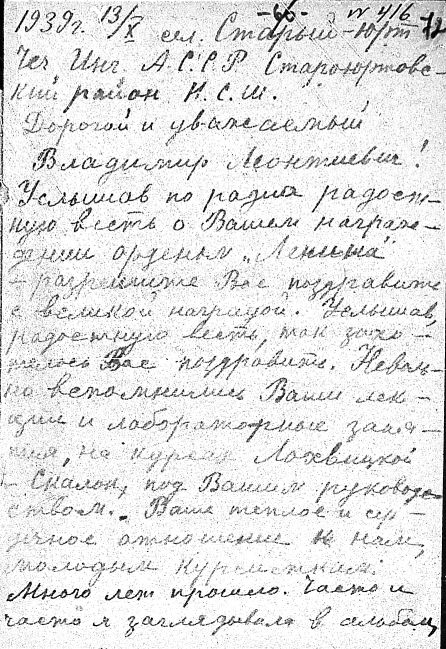 -66- № 416 72
1939г. 13/X сел. Старый-Юрт
Чеч Инг. А.С.С.Р Староюртовс-
кий район Н.С.Ш.
Дорогой и уважаемый
Владимир Леонтиевич!
Услышав по радио радост-
ную весть о Вашем награж-
дении орденом „Ленина"
- разрешите Вас поздравить
с великой наградой. Услышав,
радостную весть, так захо-
телось Вас поздравить. Неволь-
но вспомнились Ваши лек-
ции и лабораторные заня-
тия, на курсах Лохвицкой
- Скалон, под Вашим руководс-
твом. Ваше теплое и сер-
дечное отношение к нам,
молодым курсисткам.
Много лет прошло. Часто и
часто я заглядывала в альбом,